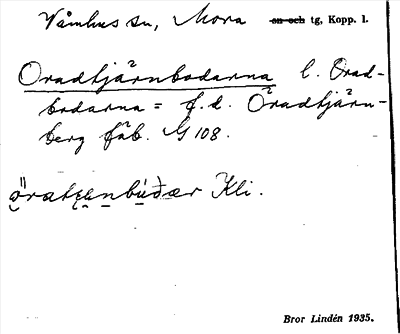 Våmhus sn, Mora sn och tg, Kopp. l.
Oradtjärnbodarna l. Orad-
bodarna = f.d. Oradtjärn-
berg fäb. G 108.
Kli.
Bror Lindén 1935.